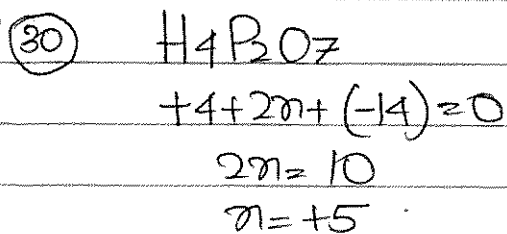 (30) H4P2O7
+4+2x+(-14)=0
2x=10
x=+5.